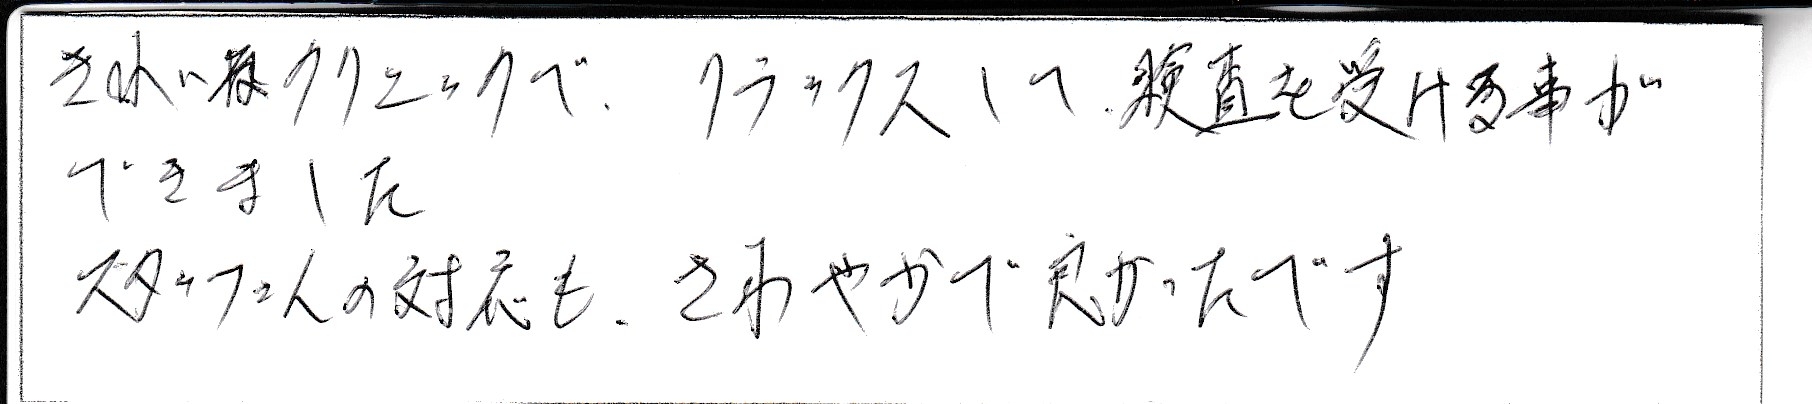 きれいなクリニックで、リラックスして、検査を受ける事が
できました
スタッフさんの対応も、さわやかで良かったです